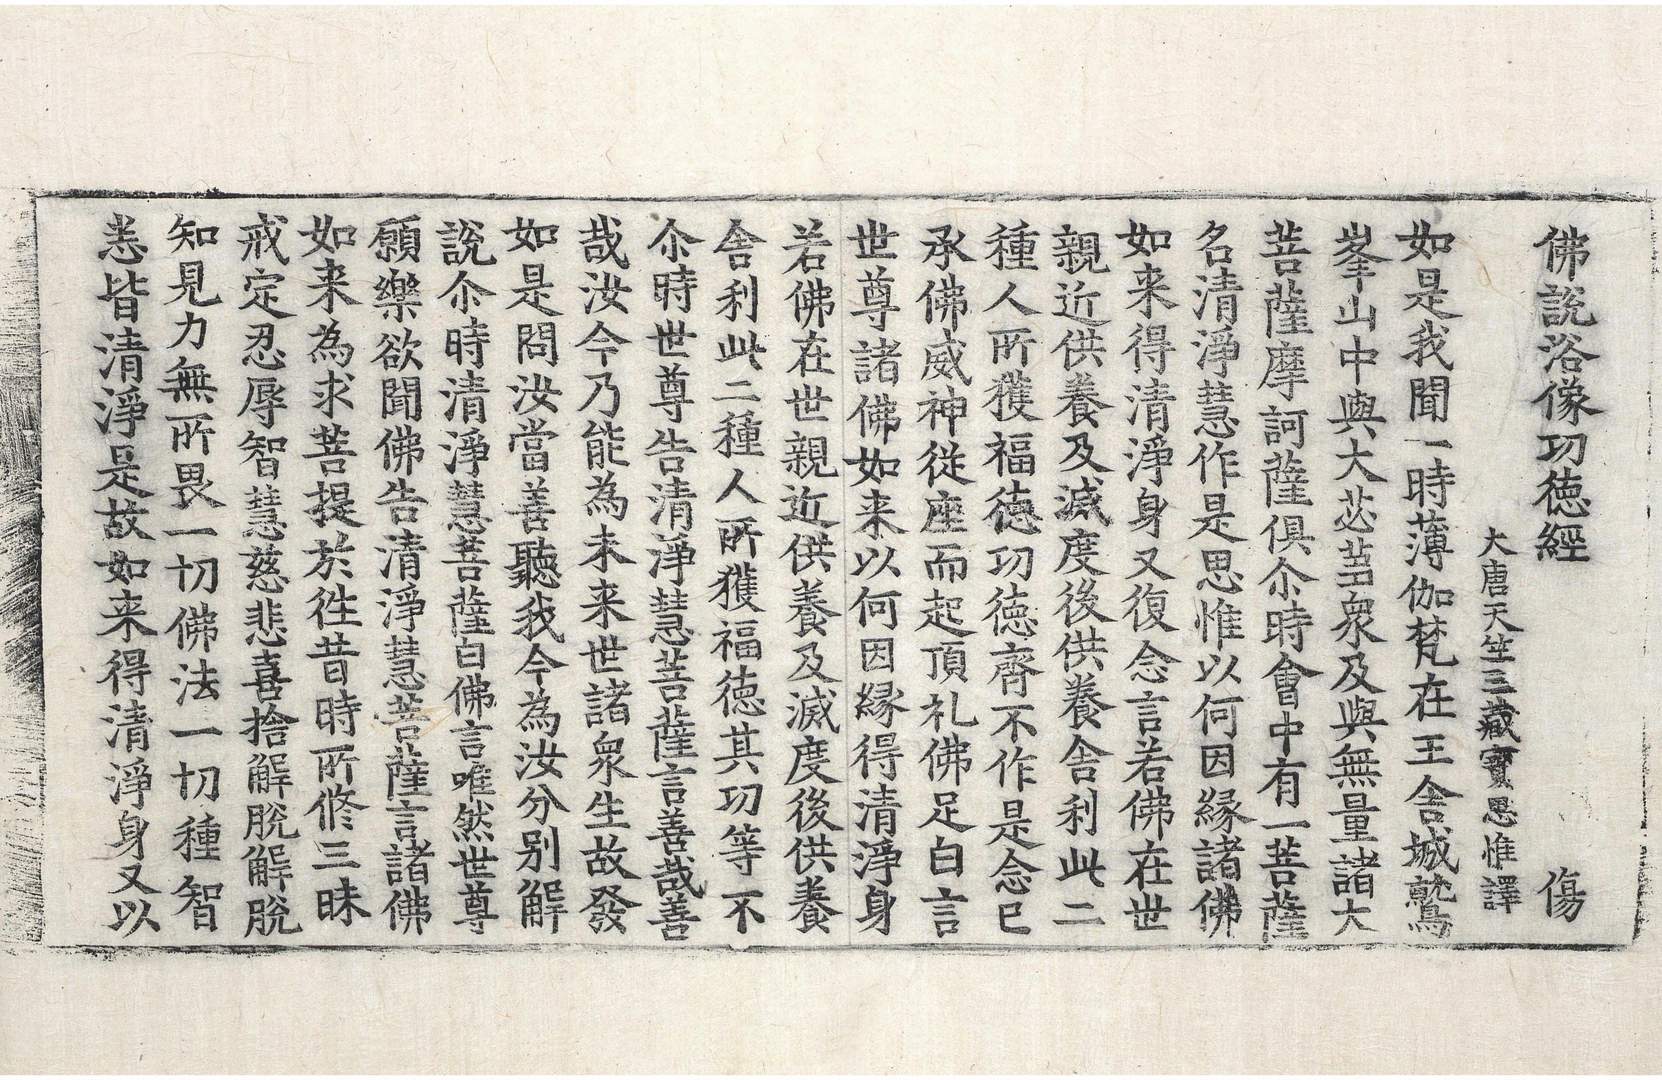 佛說浴像功德經　傷
大唐天竺三藏寶思惟譯
如是我聞一時薄伽梵在王舍城鷲
峯山中與大苾芻衆及與無量諸大
菩薩摩訶薩俱尒時會中有一菩薩
名清淨慧作是思惟以何因縁諸佛
如来得清淨身又復念言若佛在世
親近供養及滅度後供養舎利此二
種人所獲福徳功徳齊不作是念已
承佛威神從座而起頂礼佛足白言
世尊諸佛如来以何因縁得清淨身
若佛在世親近供養及滅度後供養
舎利此二種人所獲福徳其功等不
尒時世尊告清淨慧菩薩言善哉善
哉汝今乃能為未来世諸衆生故發
如是問汝當善聽我今為汝分别解
說尒時清淨慧菩薩白佛言唯然世尊
願樂欲聞佛告清淨慧菩薩言諸佛
如来為求菩提於徃昔時所修三昧
戒定忍辱智慧慈悲喜捨解脫解脫
知見力無所畏一切佛法一切種智
悉皆清淨是故如来得清淨身又以